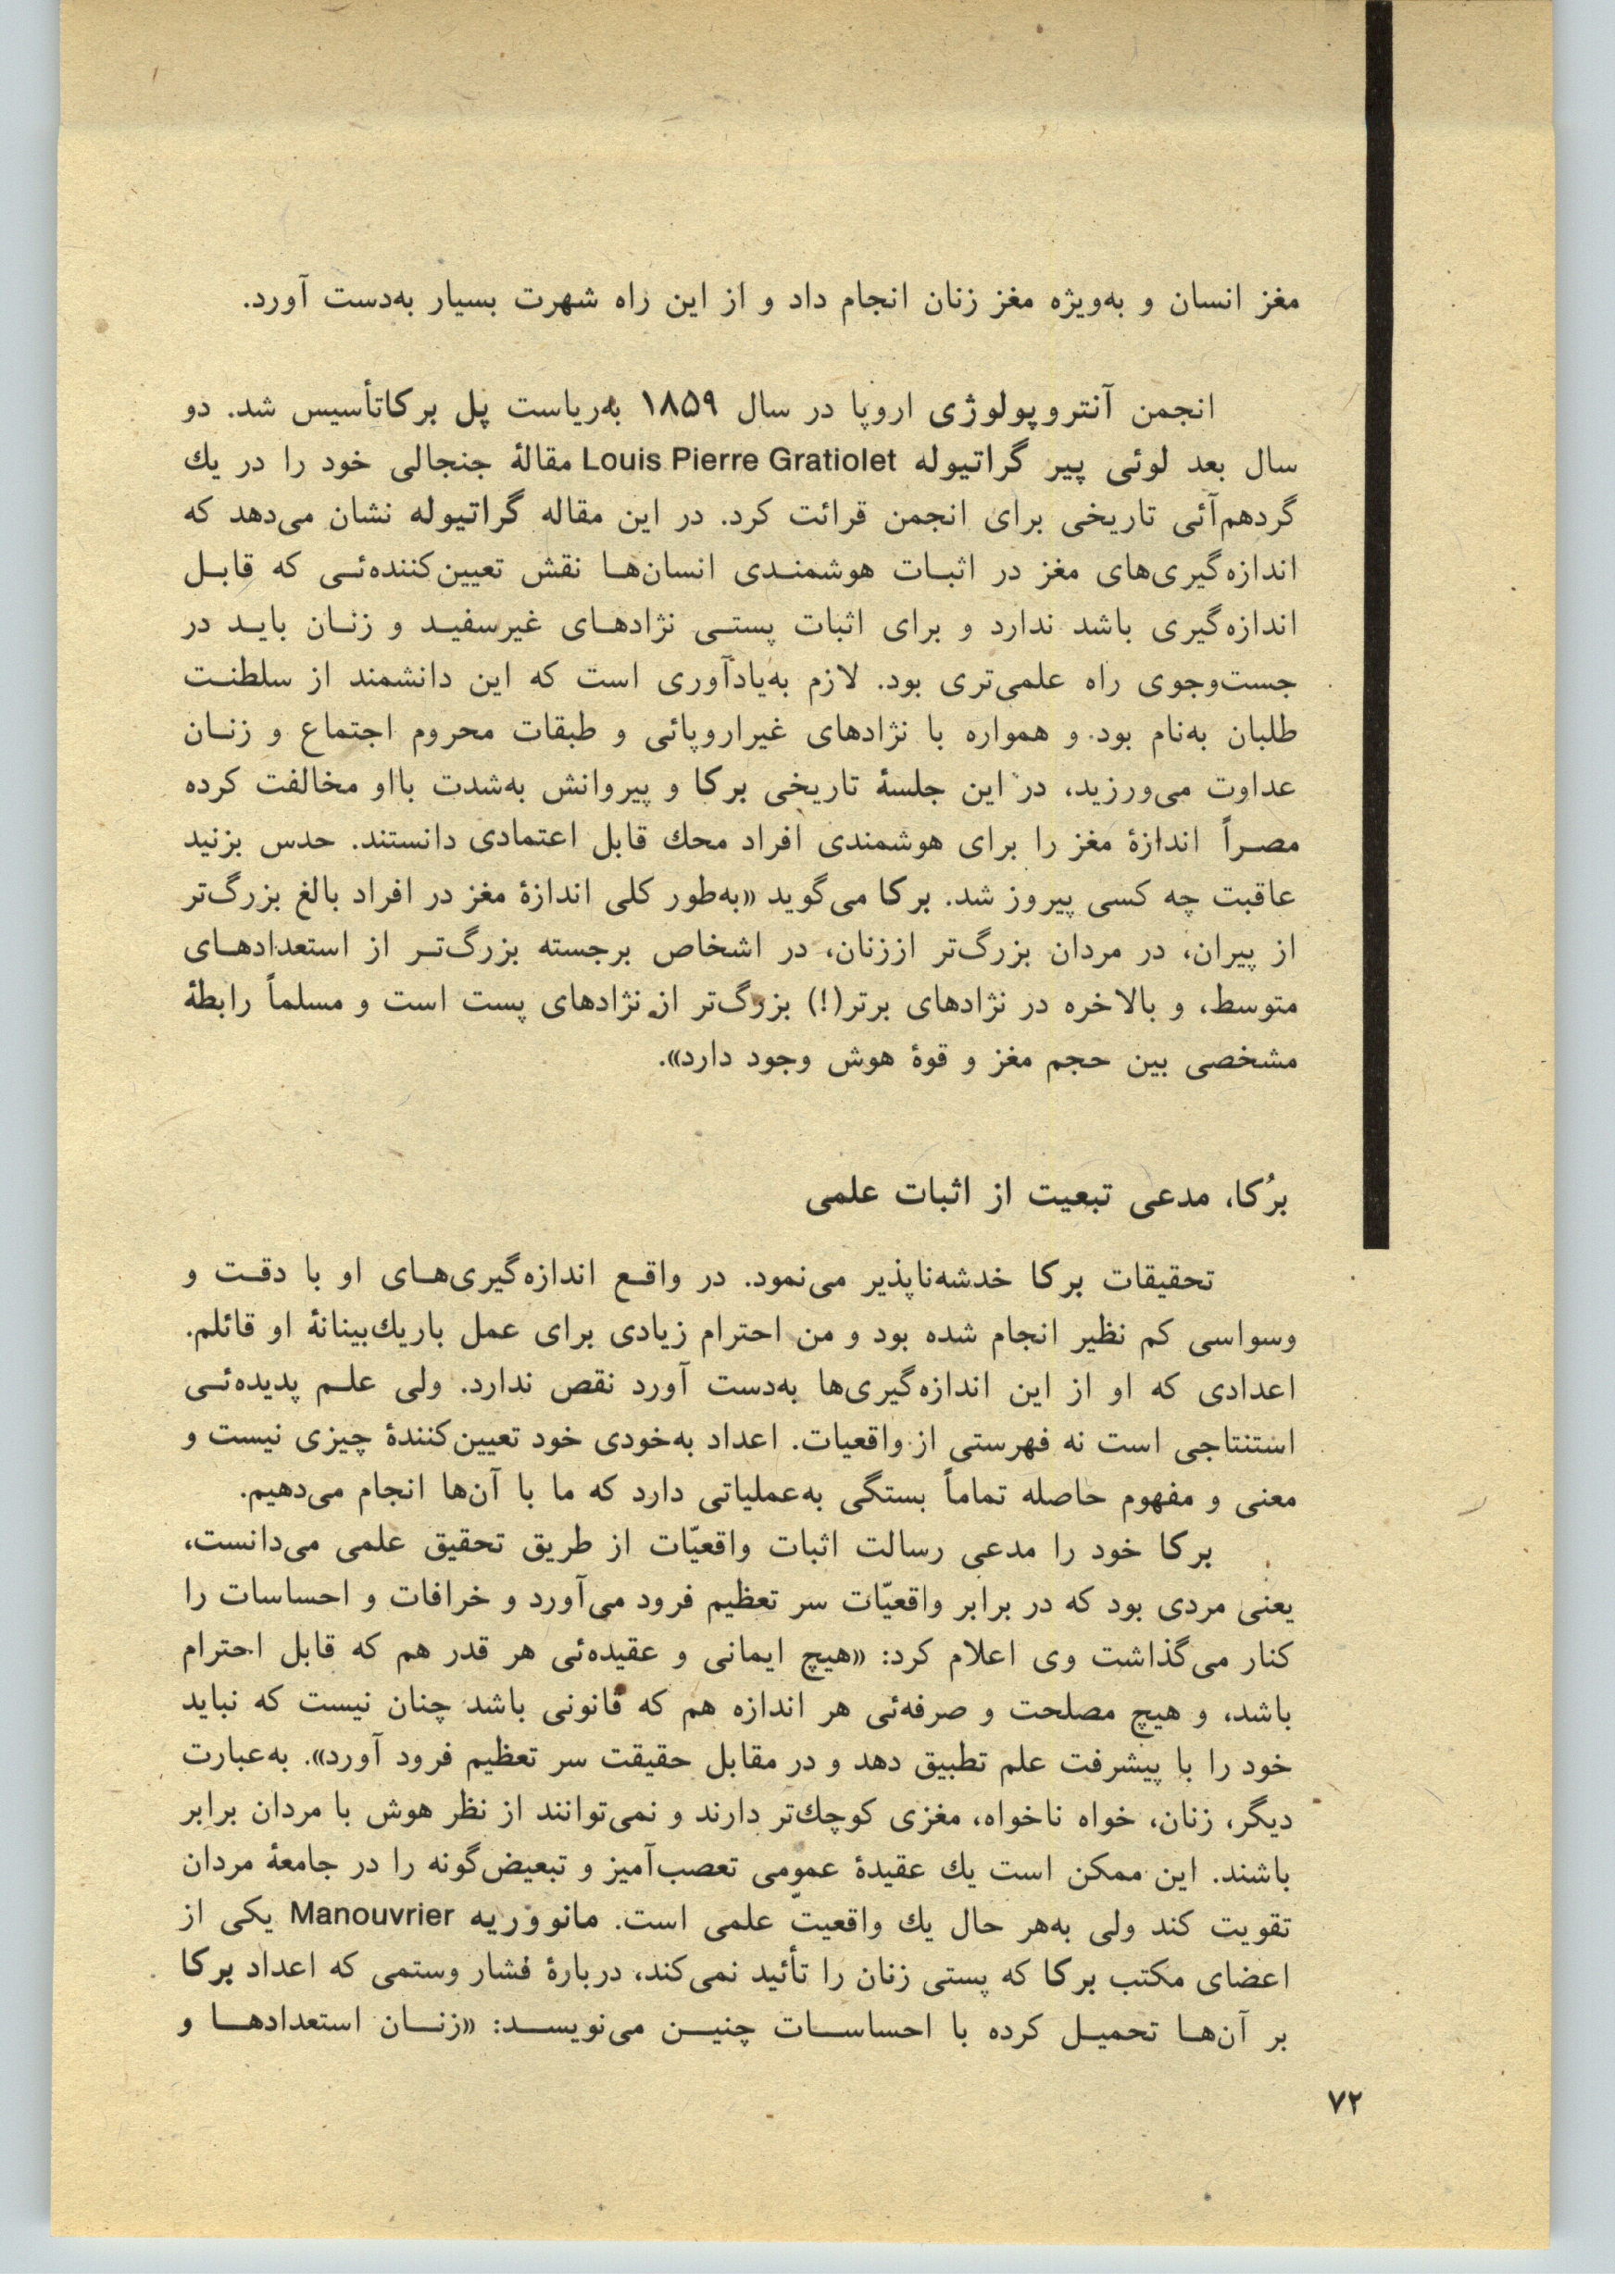 مغز انسان و به‌ویژه مغز زنان انجام داد و از این راه شهرت بسیار به‌دست آورد.
انجمن آنتروپولوژی اروپا در سال ۱۸۵۹ به‌ریاست پل برکاتأسیس شد. دو
سال بعد لوئی پیر گراتیوله Louis Pierre Gratiolet مقالهٔ جنجالی خود را در یك
گردهم‌آئی تاریخی برای انجمن قرائت کرد. در این مقاله گراتیوله نشان می‌دهد که
اندازه‌گیری‌های مغز در اثبـات هوشمنـدی انسان‌هـا نقش تعیین‌کننده‌ئـی که قابـل
اندازه‌گیری باشد ندارد و برای اثبات پستـی نژادهـای غیرسفیـد و زنـان بایـد در
جست‌وجوی راه علمی‌تری بود. لازم به‌یادآوری است که این دانشمند از سلطنـت
طلبان به‌نام بود. و همواره با نژادهای غیراروپائی و طبقات محروم اجتماع و زنـان
عداوت می‌ورزید، در این جلسهٔ تاریخی برکا و پیروانش به‌شدت بااو مخالفت کرده
مصـراً اندازهٔ مغز را برای هوشمندی افراد محك قابل اعتمادی دانستند. حدس بزنید
عاقبت چه کسی پیروز شد. برکا می‌گوید «به‌طور کلی اندازهٔ مغز در افراد بالغ بزرگ‌تر
از پیران، در مردان بزرگ‌تر اززنان، در اشخاص برجسته بزرگ‌تـر از استعدادهـای
متوسط، و بالاخره در نژادهای برتر(!) بزرگ‌تر از نژادهای پست است و مسلماً رابطهٔ
مشخصی بین حجم مغز و قوهٔ هوش وجود دارد».
برُکا، مدعی تبعیت از اثبات علمی
تحقیقات برکا خدشه‌ناپذیر می‌نمود. در واقـع اندازه‌گیری‌هـای او با دقـت و
وسواسی کم نظیر انجام شده بود و من احترام زیادی برای عمل باریك‌بینانهٔ او قائلم.
اعدادی که او از این اندازه‌گیری‌ها به‌دست آورد نقص ندارد. ولی علـم پدیده‌ئـی
استنتاجی است نه فهرستی از واقعیات. اعداد به‌خودی خود تعیین‌کنندهٔ چیزی نیست و
معنی و مفهوم حاصله تماماً بستگی به‌عملیاتی دارد که ما با آن‌ها انجام می‌دهیم.
برکا خود را مدعی رسالت اثبات واقعیّات از طریق تحقیق علمی می‌دانست،
یعنی مردی بود که در برابر واقعیّات سر تعظیم فرود می‌آورد و خرافات و احساسات را
کنار می‌گذاشت وی اعلام کرد: «هیچ ایمانی و عقیده‌ئی هر قدر هم که قابل احترام
باشد، و هیچ مصلحت و صرفه‌ئی هر اندازه هم که قانونی باشد چنان نیست که نباید
خود را با پیشرفت علم تطبیق دهد و در مقابل حقیقت سر تعظیم فرود آورد». به‌عبارت
دیگر، زنان، خواه ناخواه، مغزی کوچك‌تر دارند و نمی‌توانند از نظر هوش با مردان برابر
باشند. این ممکن است یك عقیدهٔ عمومی تعصب‌آمیز و تبعیض‌گونه را در جامعهٔ مردان
تقویت کند ولی به‌هر حال یك واقعیتّ علمی است. مانووریه Manouvrier یکی از
اعضای مکتب برکا که پستی زنان را تأئید نمی‌کند، دربارهٔ فشار وستمی که اعداد برکا
بر آن‌هـا تحمیـل کرده با احساسـات چنیـن می‌نویسـد: «زنـان استعدادهـا و
۷۲